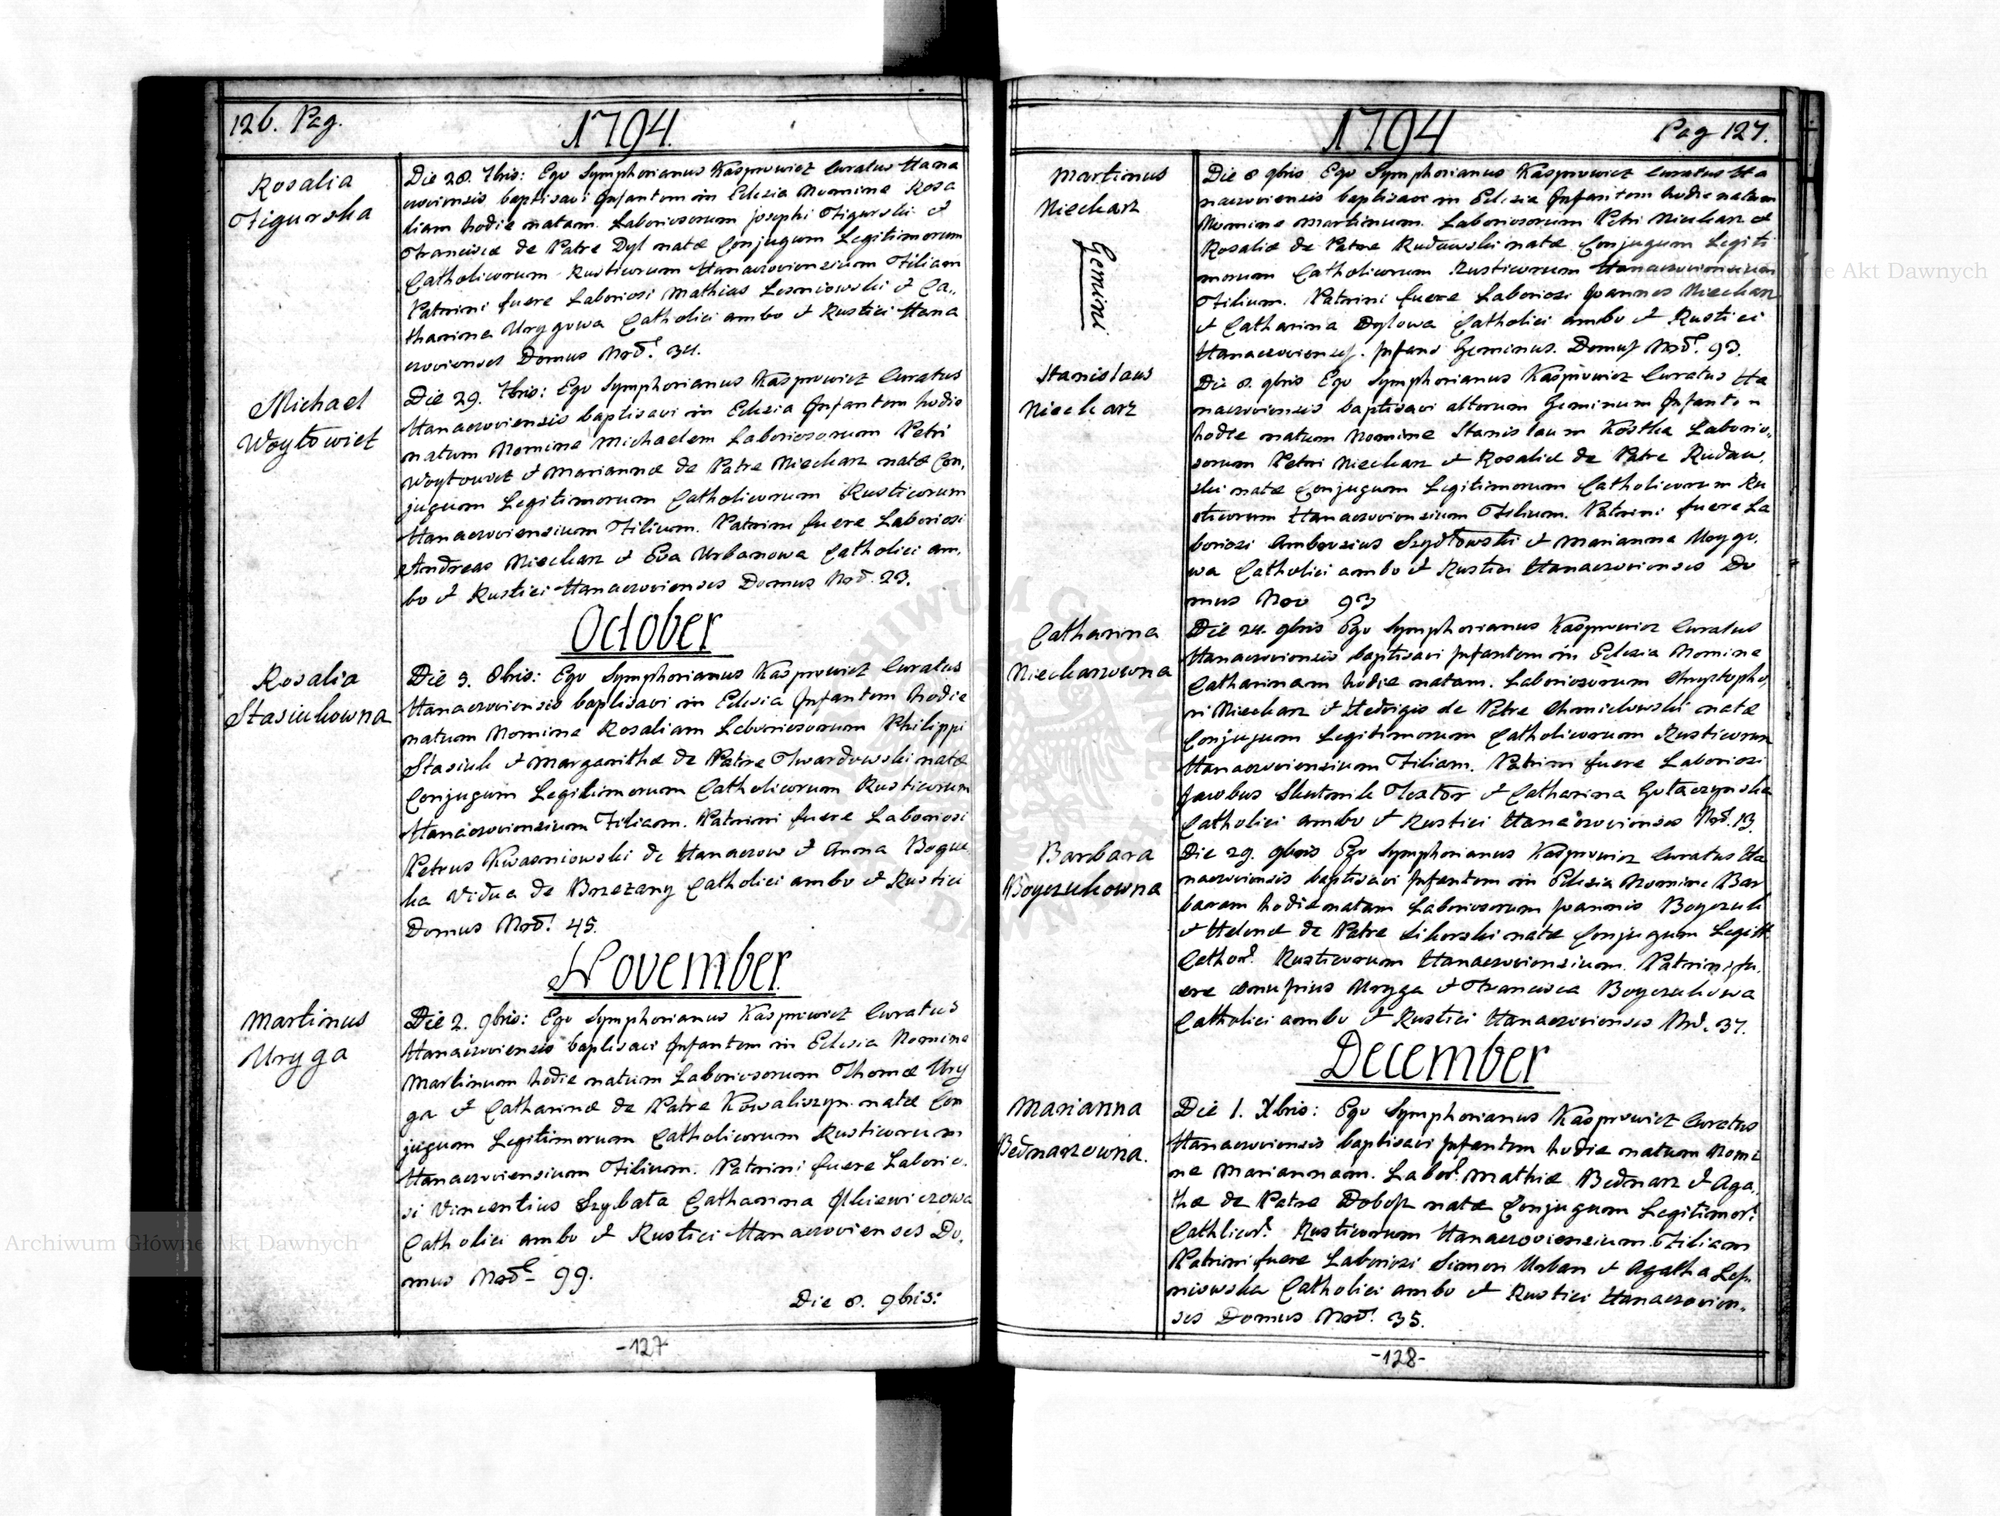 126. Pag.
1794.
Rosalia
Figurska
Die 28. 7bris: Ego Symphorianus Kasprowicz Curatus Hana
czoviensis baptisavi Infantem in Eclesia Nomine Rosa
liam hodie natam. Laboriosorum Josephi Figurski &
Franciscæ de Patre Dyl natæ Conjugum Legitimorum
Catholicorum Rusticorum Hanaczoviensium Filiam
Patrini fuere Laboriosi Mathias Lesniowski & Ca„
tharina Urygowa Catholici ambo & Rustici Hana
czovienses Domus Nrō. 34.
Michael
Woytowicz
Die 29. 7bris: Ego Symphorianus Kasprowicz Curatus
Hanaczoviensis baptisavi in Eclesia Infantem hodie
natum Nomine Michaelem Laboriosorum Petri
Woytowicz & Mariannæ de Patre Niecharz natæ Con„
jugum Legitimorum Catholicorum Rusticorum
Hanaczoviensium Filium. Patrini fuere Laboriosi
Andreas Niecharz & Eva Urbanowa Catholici am„
bo & Rustici Hanaczovienses Domus Nrō. 23.
October
Rosalia
Stasiukowna
Die 3. 8bris: Ego Symphorianus Kasprowicz Curatus
Hanaczoviensis baptisavi in Eclesia Infantem hodie
natum Nomine Rosaliam Laboriosorum Philippi
Stasiuk & Margarithæ de Patre Twardowski natæ
Conjugum Legitimorum Catholicorum Rusticorum
Hanaczoviensium Filiam. Patrini fuere Laboriosi
Petrus Kwasniowski de Hanaczow & Anna Bogus
ka Vidua de Brzezany Catholici ambo & Rustici
Domus Nrō. 45.
November.
Martinus
Uryga
Die 2. 9bris: Ego Symphorianus Kasprowicz Curatus
Hanaczoviensis baptisavi Infantem in Eclesia Nomine
Martinum hodie natum Laboriosorum Thomæ Ury
ga & Catharinæ de Patre Kowaliszyn natæ Con
jugum Legitimorum Catholicorum Rusticorum
Hanaczoviensium Filium. Patrini fuere Laborio„
si Vincentius Szybata Catharina Ilkiewiczowa
Catholici ambo & Rustici Hanaczovienses Do„
mus Nrō 99.
Die 8. 9bris:
-127-
1794
Pag 127.
Martinus
Niecharz
Gemini
Die 8 9bris Ego Symphorianus Kasprowicz Curatus Ha
naczoviensis baptisavi in Eclesia Infantem hodie natum
Nomine Martinum. Laboriosorum Petri Niecharz et
Rosaliæ de Patre Rudawski natæ Conjugum Legiti
morum Catholicorum Rusticorum Hanaczoviensium
Filium. Patrini fuere Laboriosi Joannes Niecharz
& Catharina Dylowa Catholici ambo & Rustici
Hanaczovienses. Infans Geminus. Domus Nrō. 93.
Stanislaus
Niecharz
Die 8. 9bris Ego Symphorianus Kasprowicz Curatus Ha
naczoviensis baptisavi alterum Geminum Infantem
hodie natum Nomine Stanislaum Kostka Laborio„
sorum Petri Niecharz & Rosaliæ de Patre Rudaw„
ski natæ Conjugum Legitimorum Catholicorum Ru
sticorum Hanaczoviensium Filium. Patrini fuere La
boriosi Ambrosius Szydłowski & Marianna Urygo„
wa Catholici ambo & Rustici Hanaczovienses Do
mus Nro 93
Catharina
Niecharzowna
Die 24. 9bris Ego Symphorianus Kasprowicz Curatus
Hanaczoviensis baptisavi Infantem in Eclesia Nomine
Catharinam hodie natam. Laboriosorum Chrystopho„
ri Niecharz & Hedvigis de Patre Chmielowski natæ
Conjugum Legitimorum Catholicorum Rusticorum
Hanaczoviensium Filiam. Patrini fuere Laboriosi
Jacobus Textor & Catharina
Catholici ambo & Rustici Hanaczovienses Nrō. 13.
Barbara
Boyczukowna
Die 29. 9bris Ego Symphorianus Kasprowicz Curatus Ha
naczoviensis baptisavi Infantem in Eclesia Nomine Bar
baram hodie natam Laboriosorum Joannis Boyczuk
& Helenæ de Patre Sikorski natæ Conjugum Legitt.
Cathor. Rusticorum Hanaczoviensium. Patrini fu„
ere Onuprius Uryga & Francisca Boyczukowa
Catholici ambo & Rustici Hanaczovienses Nrō. 37.
December
Marianna
Bednarzowna.
Die 1. Xbris: Ego Symphorianus Kasprowicz Curatus
Hanaczoviensis baptisavi Infantem hodie natum Nomi
ne Mariannam. Labor. Mathiæ Bednarz & Aga„
thæ de Patre Dobosz natæ Conjugum Legitimor.
Cathlicor. Rusticorum Hanaczoviensium Filiam
Patrini fuere Laboriosi Simon Urban & Agatha Les„
niowska Catholici ambo & Rustici Hanaczovien„
ses Domus Nrō. 35.
-128-
Archiwum Główne Akt Dawnych
Archiwum Główne Akt Dawnych